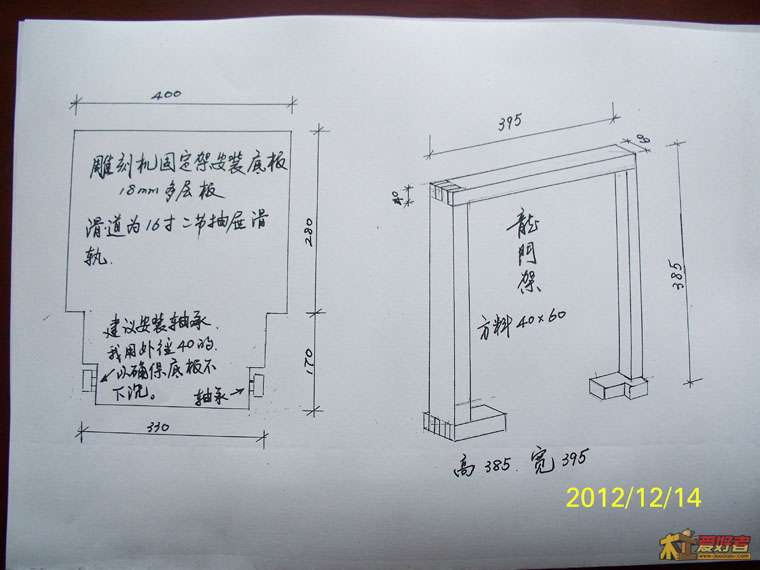 400
雕刻机固定架安装底板
18mm多层板
滑道为16寸二节抽屉滑
轨.
280
建议安装轴承.
我用外径40的.
以确保底板不
下沉。
轴承
170
330
395
60
40
龙门架
方料40×60
385
高385.宽395
2012/12/14
木工爱好者